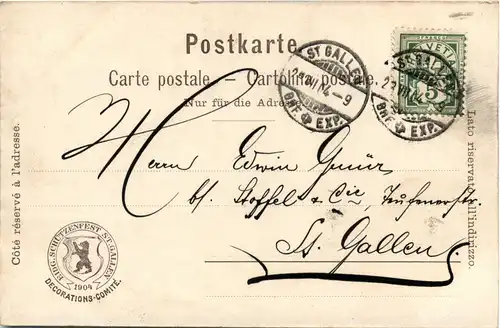 Postkarte.
Carte postale. — Cartolina postale.
Nur für die Adresse
Côté réservé à l'adresse.
Lato riservato all'indirizzo.
ST GALLEN
—9
BRF. EXP.
FRANCO
HELVETIA
5
ST GALLEN
BRF. EXP.
Herrn Edwin
bl. Stoffel & Cie, Teufenerstr.
St. Gallen.
EIDG. SCHÜTZENFEST ST. GALLEN
1904
DECORATIONS-COMITÉ.